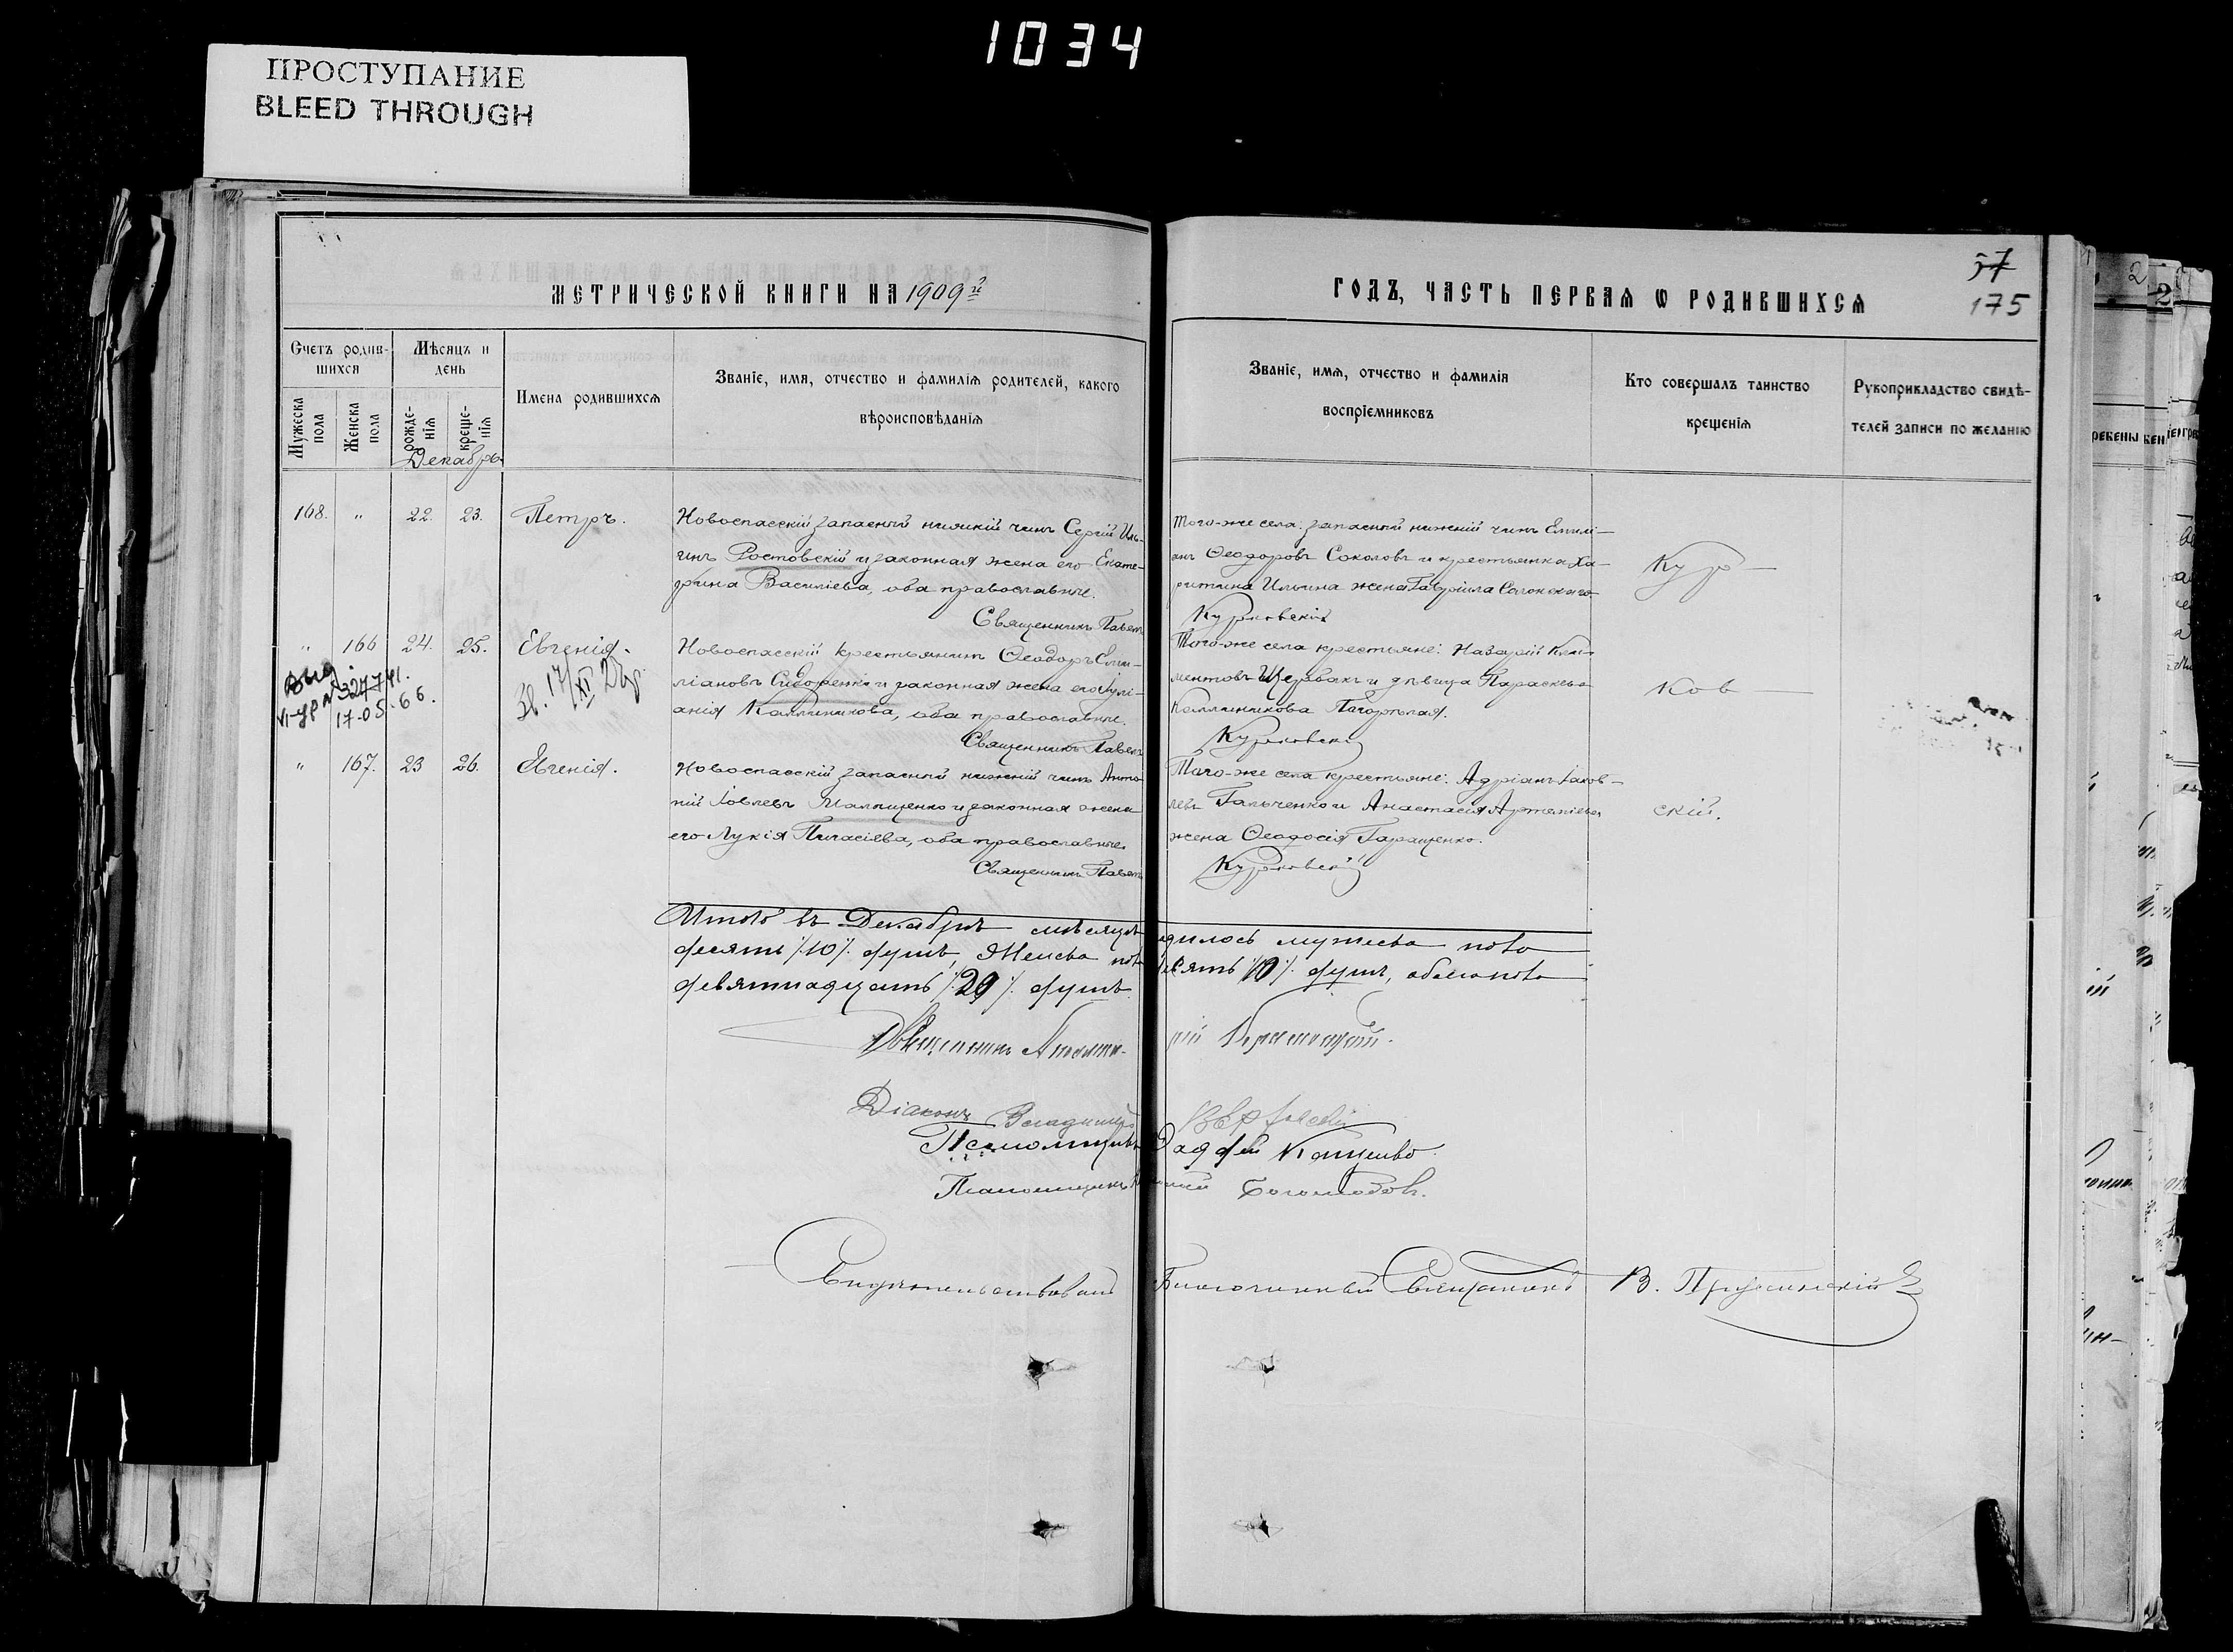 1034
ПРОСТУПАНИЕ
BLEED THROUGH
57
175
МЕТРИЧЕСКОЙ КНИГИ НА 1909й
ГОДЪ, ЧАСТЬ ПЕРВАѦ Ѡ РОДИВШИХСѦ
Счетъ родив-
шихся
Мужеска
пола
Женска
пола
Мѣсяцъ и
день
рожде-
нія
креще-
нія
Декабрь
Имена родившихсѧ
Званіе, имя, отчество и фамиліѧ родителей, какого
вѣроисповѣданіѧ
Званіе, имѧ, отчество и фамилія
воспріемниковъ
Кто совершалъ таинство
крещеніѧ
Рукоприкладство свидѣ-
телей записи по желанію
168. " 22. 23. Петръ.
Новоспасскій запасный нижній чинъ Сергій Иль-
инъ Ростовскій и законная жена его Екате-
рина Василіева, оба православные.
Священникъ Павелъ
Того-же села: запасный нижній чинъ Емилі-
анъ Ѳеодоровъ Соколовъ и крестьянка Ха-
ритина Ильина жена Гавріила
Курковскій
Кур-
" 166 24. 25. Евгенія.
Новоспасскій крестьянинъ Ѳеодоръ Емил-
ліановъ Сидоренко и законная жена его Іулі-
анія Каллиникова, оба православные.
Священникъ Павелъ
Того-же села крестьяне: Назарій Кли-
ментовъ Щербакъ и дѣвица Параскева
Каллиникова Погорѣлая.
Курковскій
ков-
№ 327741.
17-05-66.
17/XI 23г.
" 167. 23 26. Евгенія.
Новоспасскій запасный нижній чинъ Анто-
ній Іовлевъ и законная жена
его Лукія Пигасіева, оба православные.
Священникъ Павелъ
Того-же села крестьяне: Адріанъ Іаков-
левъ Гальченко и Анастасія Артеміева
жена Ѳеодосія Геращенко.
Курковскій
скій.
Итого въ Декабрѣ мѣсяцѣ родилось мужеска пола
десять /.10/. душъ, Женска пола десять /10/. душъ, обоего пола
девятнадцать /.20/. душъ.
Священникъ
Діаконъ Владиміръ
Псаломщикъ Фаддей Кащенко.
Псаломщикъ Боголюбовъ.
Свидѣтельствовалъ Благочинный Священникъ В.